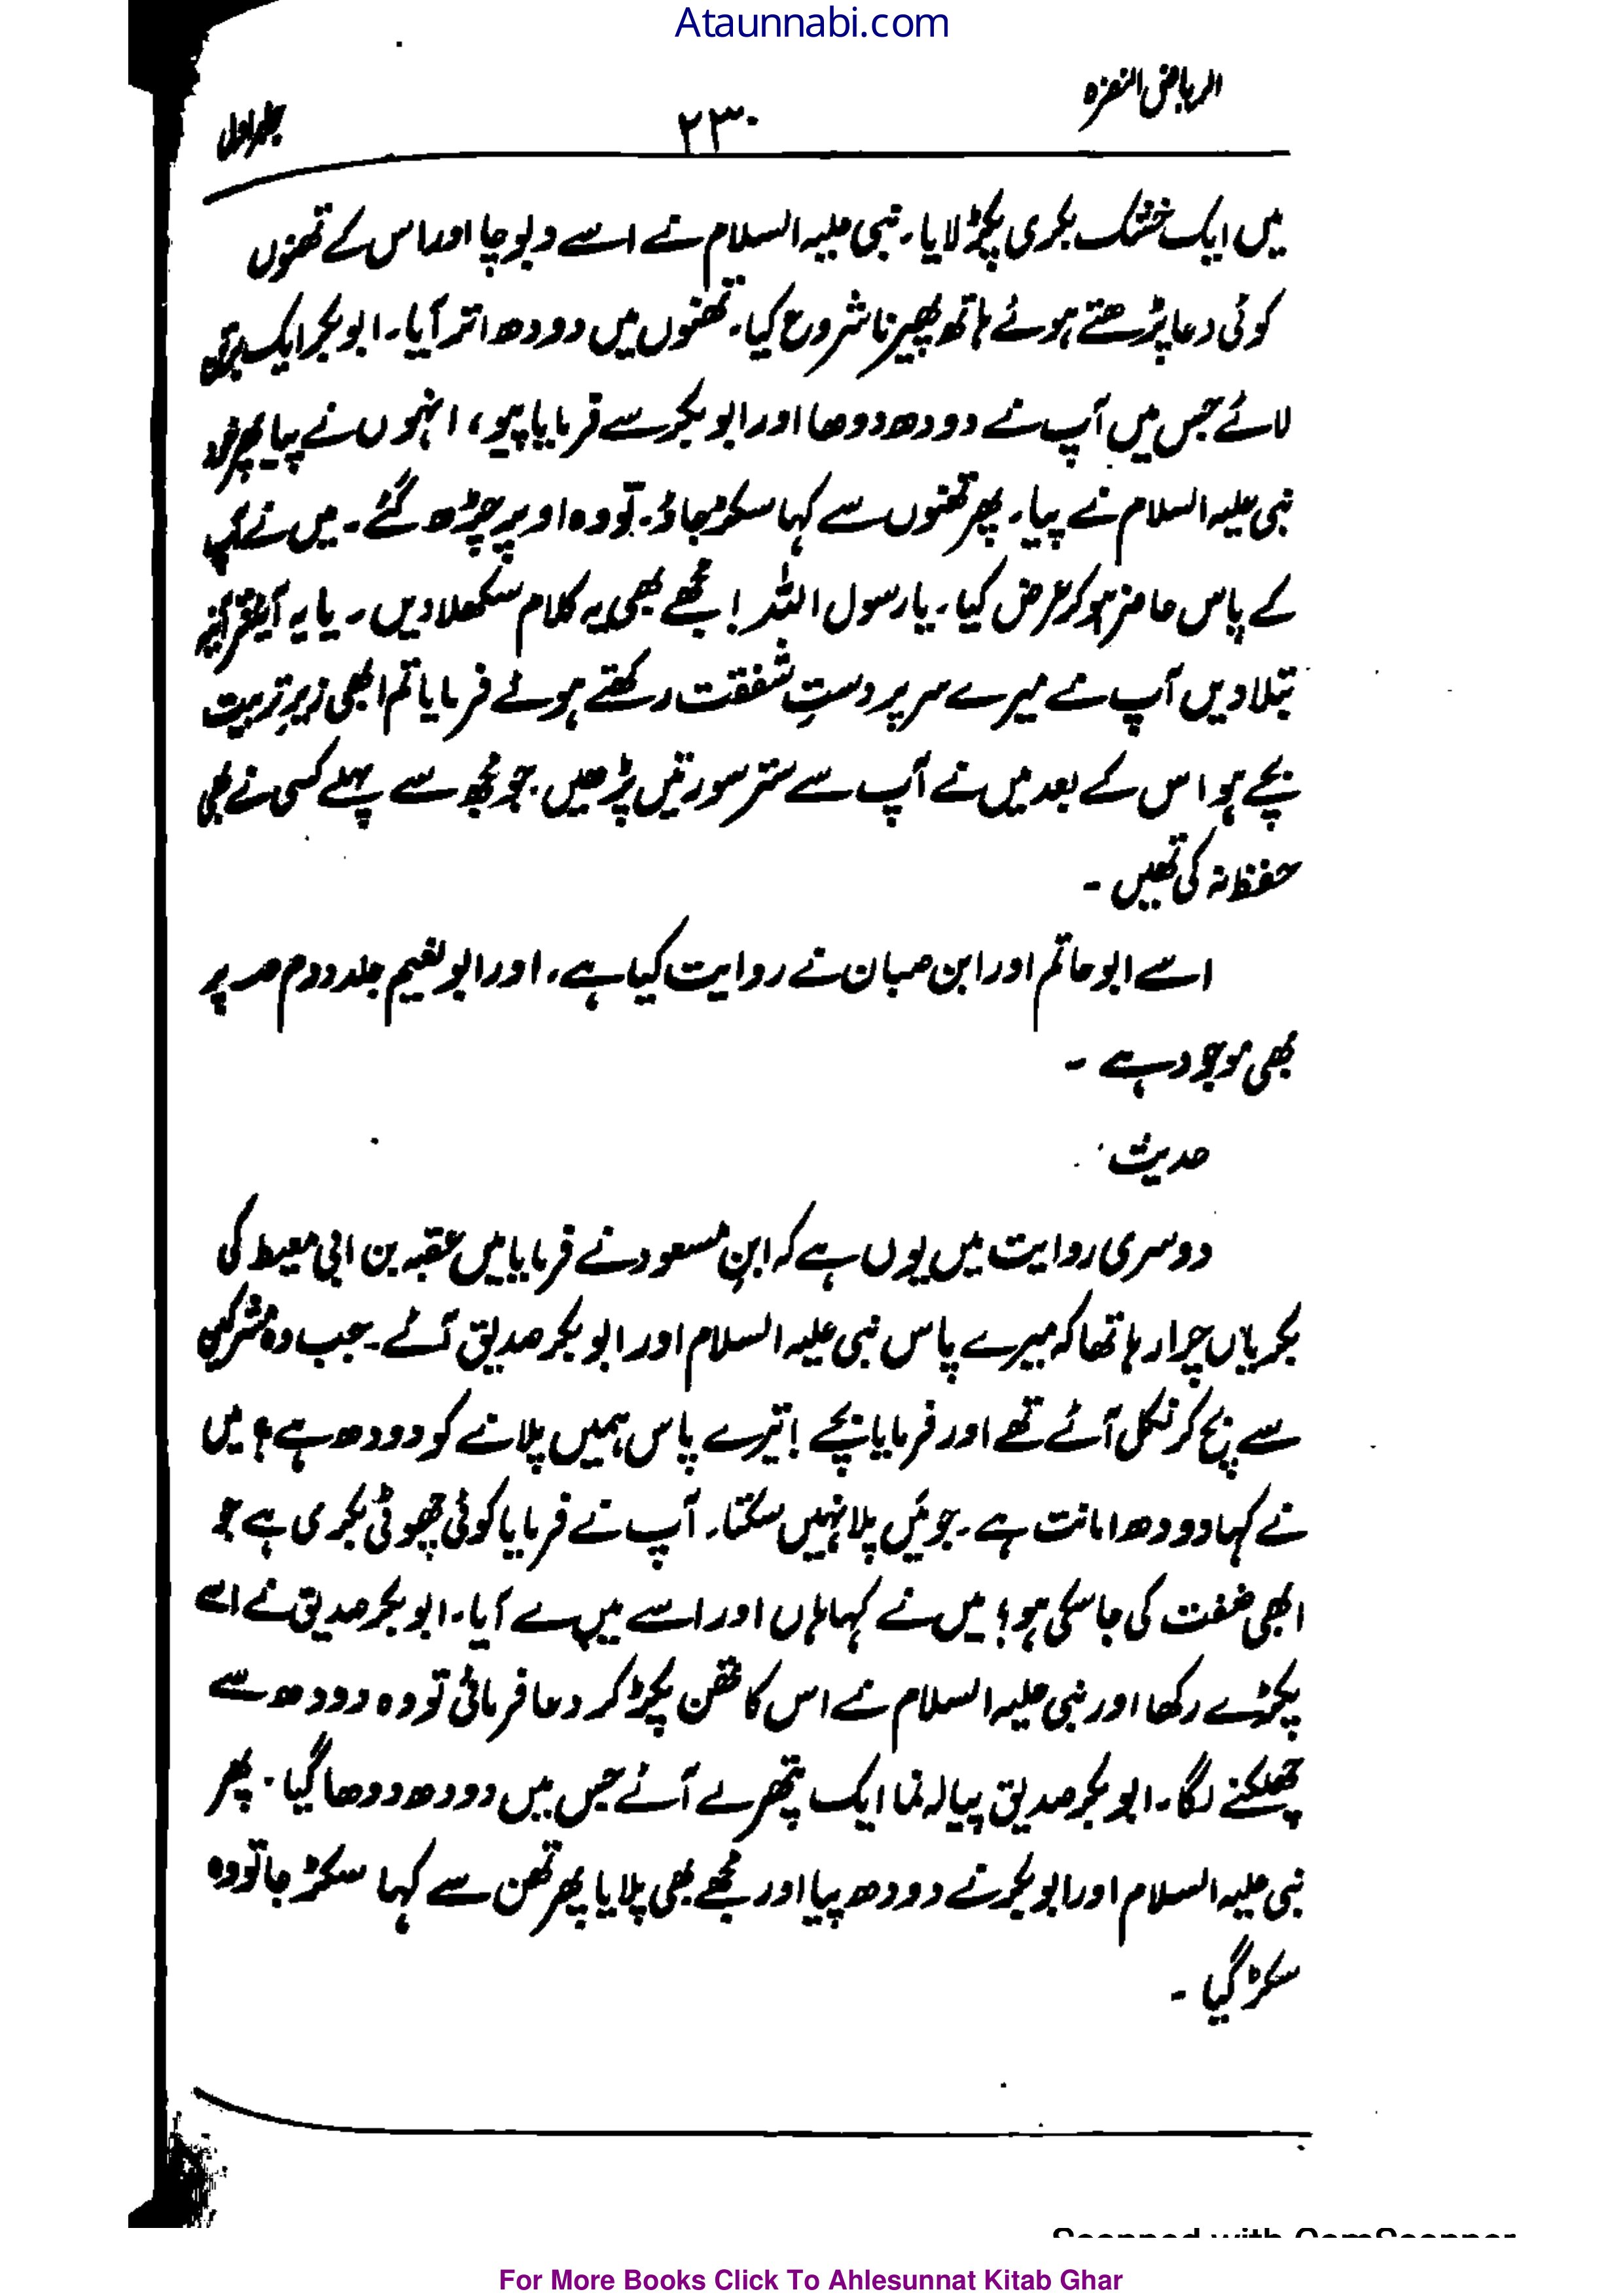 Ataunnabi.com
الریاض النضرہ
۲۳۰
جلد اول
میں ایک خشک بکری پکڑ لایا۔ نبی علیہ السلام نے اسے دبوچا اور اس کے تھنوں
کوئی دعا پڑھتے ہوئے ہاتھ پھیرنا شروع کیا۔ تھنوں میں دودھ اتر آیا۔ ابو بکر ایک برتن
لائے جس میں آپ نے دودھ دوھا اور ابو بکر سے فرمایا پیو، انہوں نے پیا پھر خود
نبی علیہ السلام نے پیا۔ پھر تھنوں سے کہا سکڑ جاؤ۔ تو وہ اوپر چڑھ گئے۔ میں نے آپ
کے پاس حاضر ہو کر عرض کیا۔ یا رسول اللہ! مجھے بھی یہ کلام سکھلا دیں۔ یا یہ
بتلا دیں آپ نے میرے سر پر دستِ شفقت رکھتے ہوئے فرمایا تم ابھی زیرِ تربیت
بچے ہو اس کے بعد میں نے آپ سے ستر سورتیں پڑھیں۔ جو مجھ سے پہلے کسی نے بھی
حفظ نہ کی تھیں۔
اسے ابو حاتم اور ابن حبان نے روایت کیا ہے۔ اور ابو نعیم جلد دوم صہ پر
بھی موجود ہے۔
حدیث
دوسری روایت میں یوں ہے کہ ابنِ مسعود نے فرمایا میں عقبہ بن ابی معیط کی
بکریاں چرا رہا تھا کہ میرے پاس نبی علیہ السلام اور ابو بکر صدیق آئے۔ جب وہ مشرکین
سے بچ کر نکل آئے تھے اور فرمایا بچے! تیرے پاس ہمیں پلانے کو دودھ ہے؟ میں
نے کہا دودھ امانت ہے۔ جو میں پلا نہیں سکتا۔ آپ نے فرمایا کوئی چھوٹی بکری ہے جو
ابھی ضفت کی جا سکی ہو؟ میں نے کہا ہاں اور اسے میں لے آیا۔ ابو بکر صدیق نے اسے
پکڑے رکھا اور نبی علیہ السلام نے اس کا تھن پکڑ کر دعا فرمائی تو وہ دودھ سے
چھلکنے لگا۔ ابو بکر صدیق پیالہ نما ایک پتھر لے آئے جس میں دودھ دوھا گیا۔ پھر
نبی علیہ السلام اور ابو بکر نے دودھ پیا اور مجھے بھی پلایا پھر تھن سے کہا سکڑ جا تو وہ
سکڑ گیا۔
Scanned with CamScanner
For More Books Click To Ahlesunnat Kitab Ghar